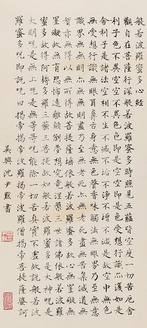 般若波羅蜜多心經
觀自在菩薩行深般若波羅蜜多時照見五蘊皆空度一切苦厄舍
利子色不異空空不異色色即是空空即是色受想行識亦復如是
舍利子是諸法空相不生不滅不垢不淨不增不減是故空中無色
無受想行識無眼耳鼻舌身意無色聲香味觸法無眼界乃至無意
識界無無明亦無無明盡乃至無老死亦無老死盡無苦集滅道無
智亦無得以無所得故菩提薩埵依般若波羅蜜多故心無罣礙無
罣礙故無有恐怖遠離顛倒夢想究竟涅槃三世諸佛依般若波羅
蜜多故得阿耨多羅三藐三菩提故知般若波羅蜜多是大神咒是
大明咒是無上咒是無等等咒能除一切苦真實不虛故說般若波
羅蜜多咒即說咒曰揭諦揭諦波羅揭諦波羅僧揭諦菩提薩婆訶
吳興沈尹默書